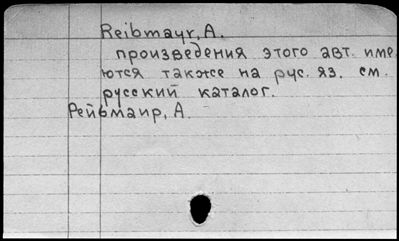 Reibmayr, A.
произведения этого авт. име
ются также на рус. яз. см.
русский каталог.
Рейбмаир, А.